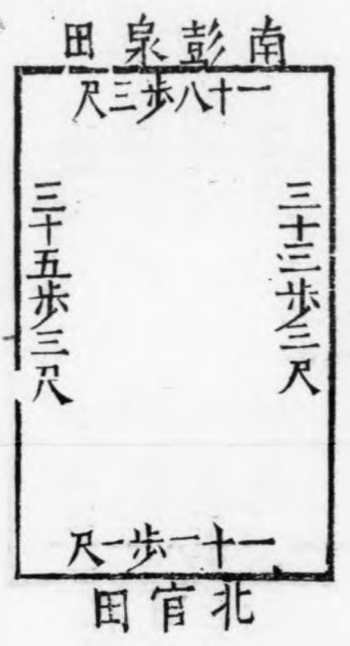 南彭泉田
一十八步三尺
三十三步三尺
三十五步三尺
一十一步一尺
北官田